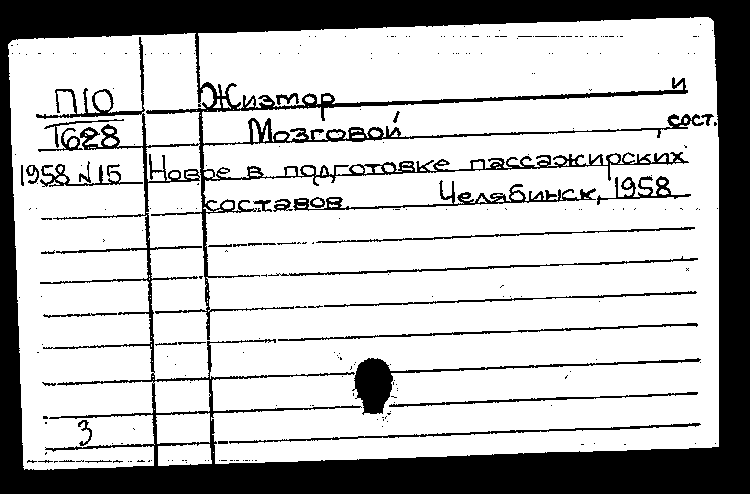 П10 Жизтор и
Т628 Мозговой , сост.
1958 №15 Новое в подготовке пассажирских
составов. Челябинск, 1958.
3